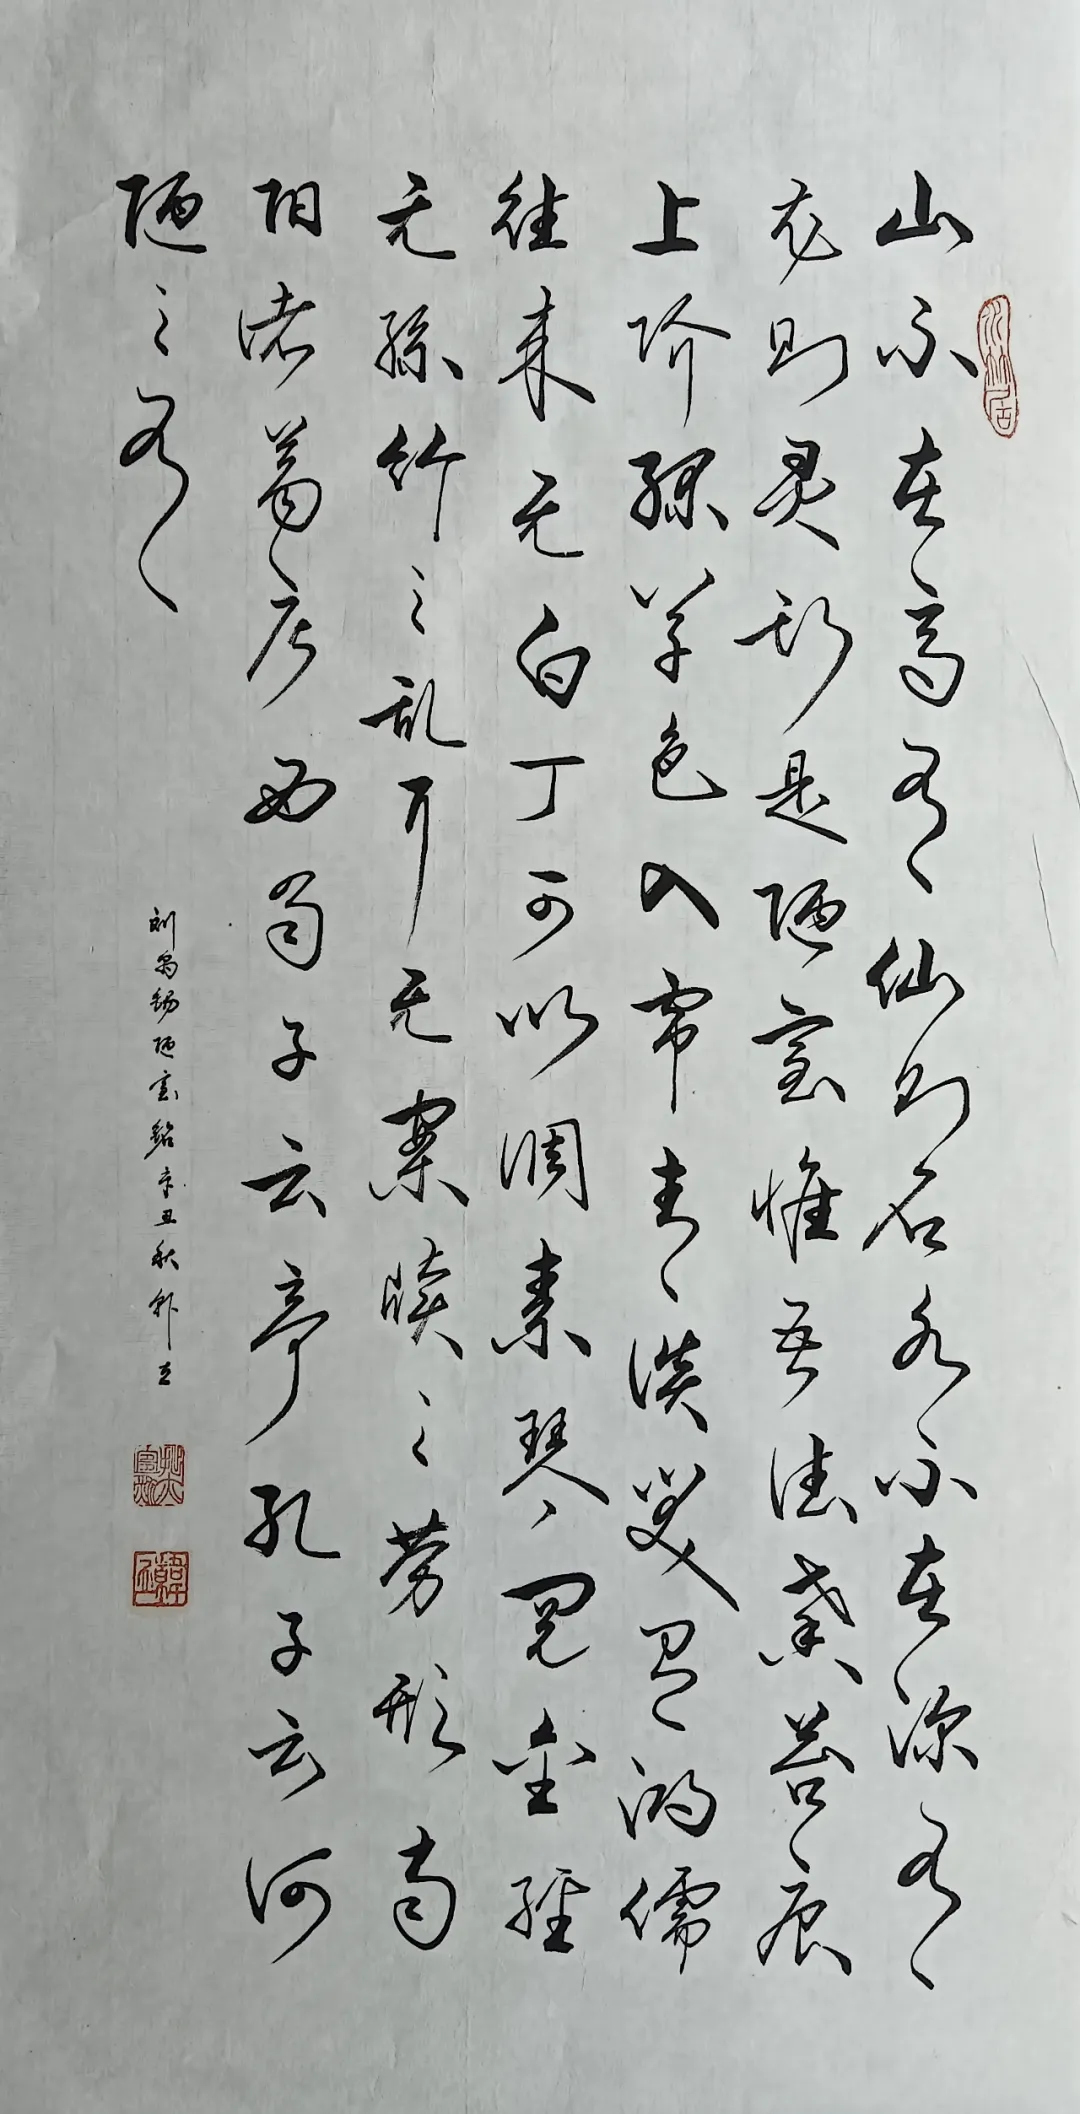 山不在高有仙则名水不在深有
龙则灵斯是陋室惟吾德馨苔痕
上阶绿草色入帘青谈笑有鸿儒
往来无白丁可以调素琴阅金经
无丝竹之乱耳无案牍之劳形南
阳诸葛庐西蜀子云亭孔子云何
陋之有
刘禹锡陋室铭辛丑秋韩立